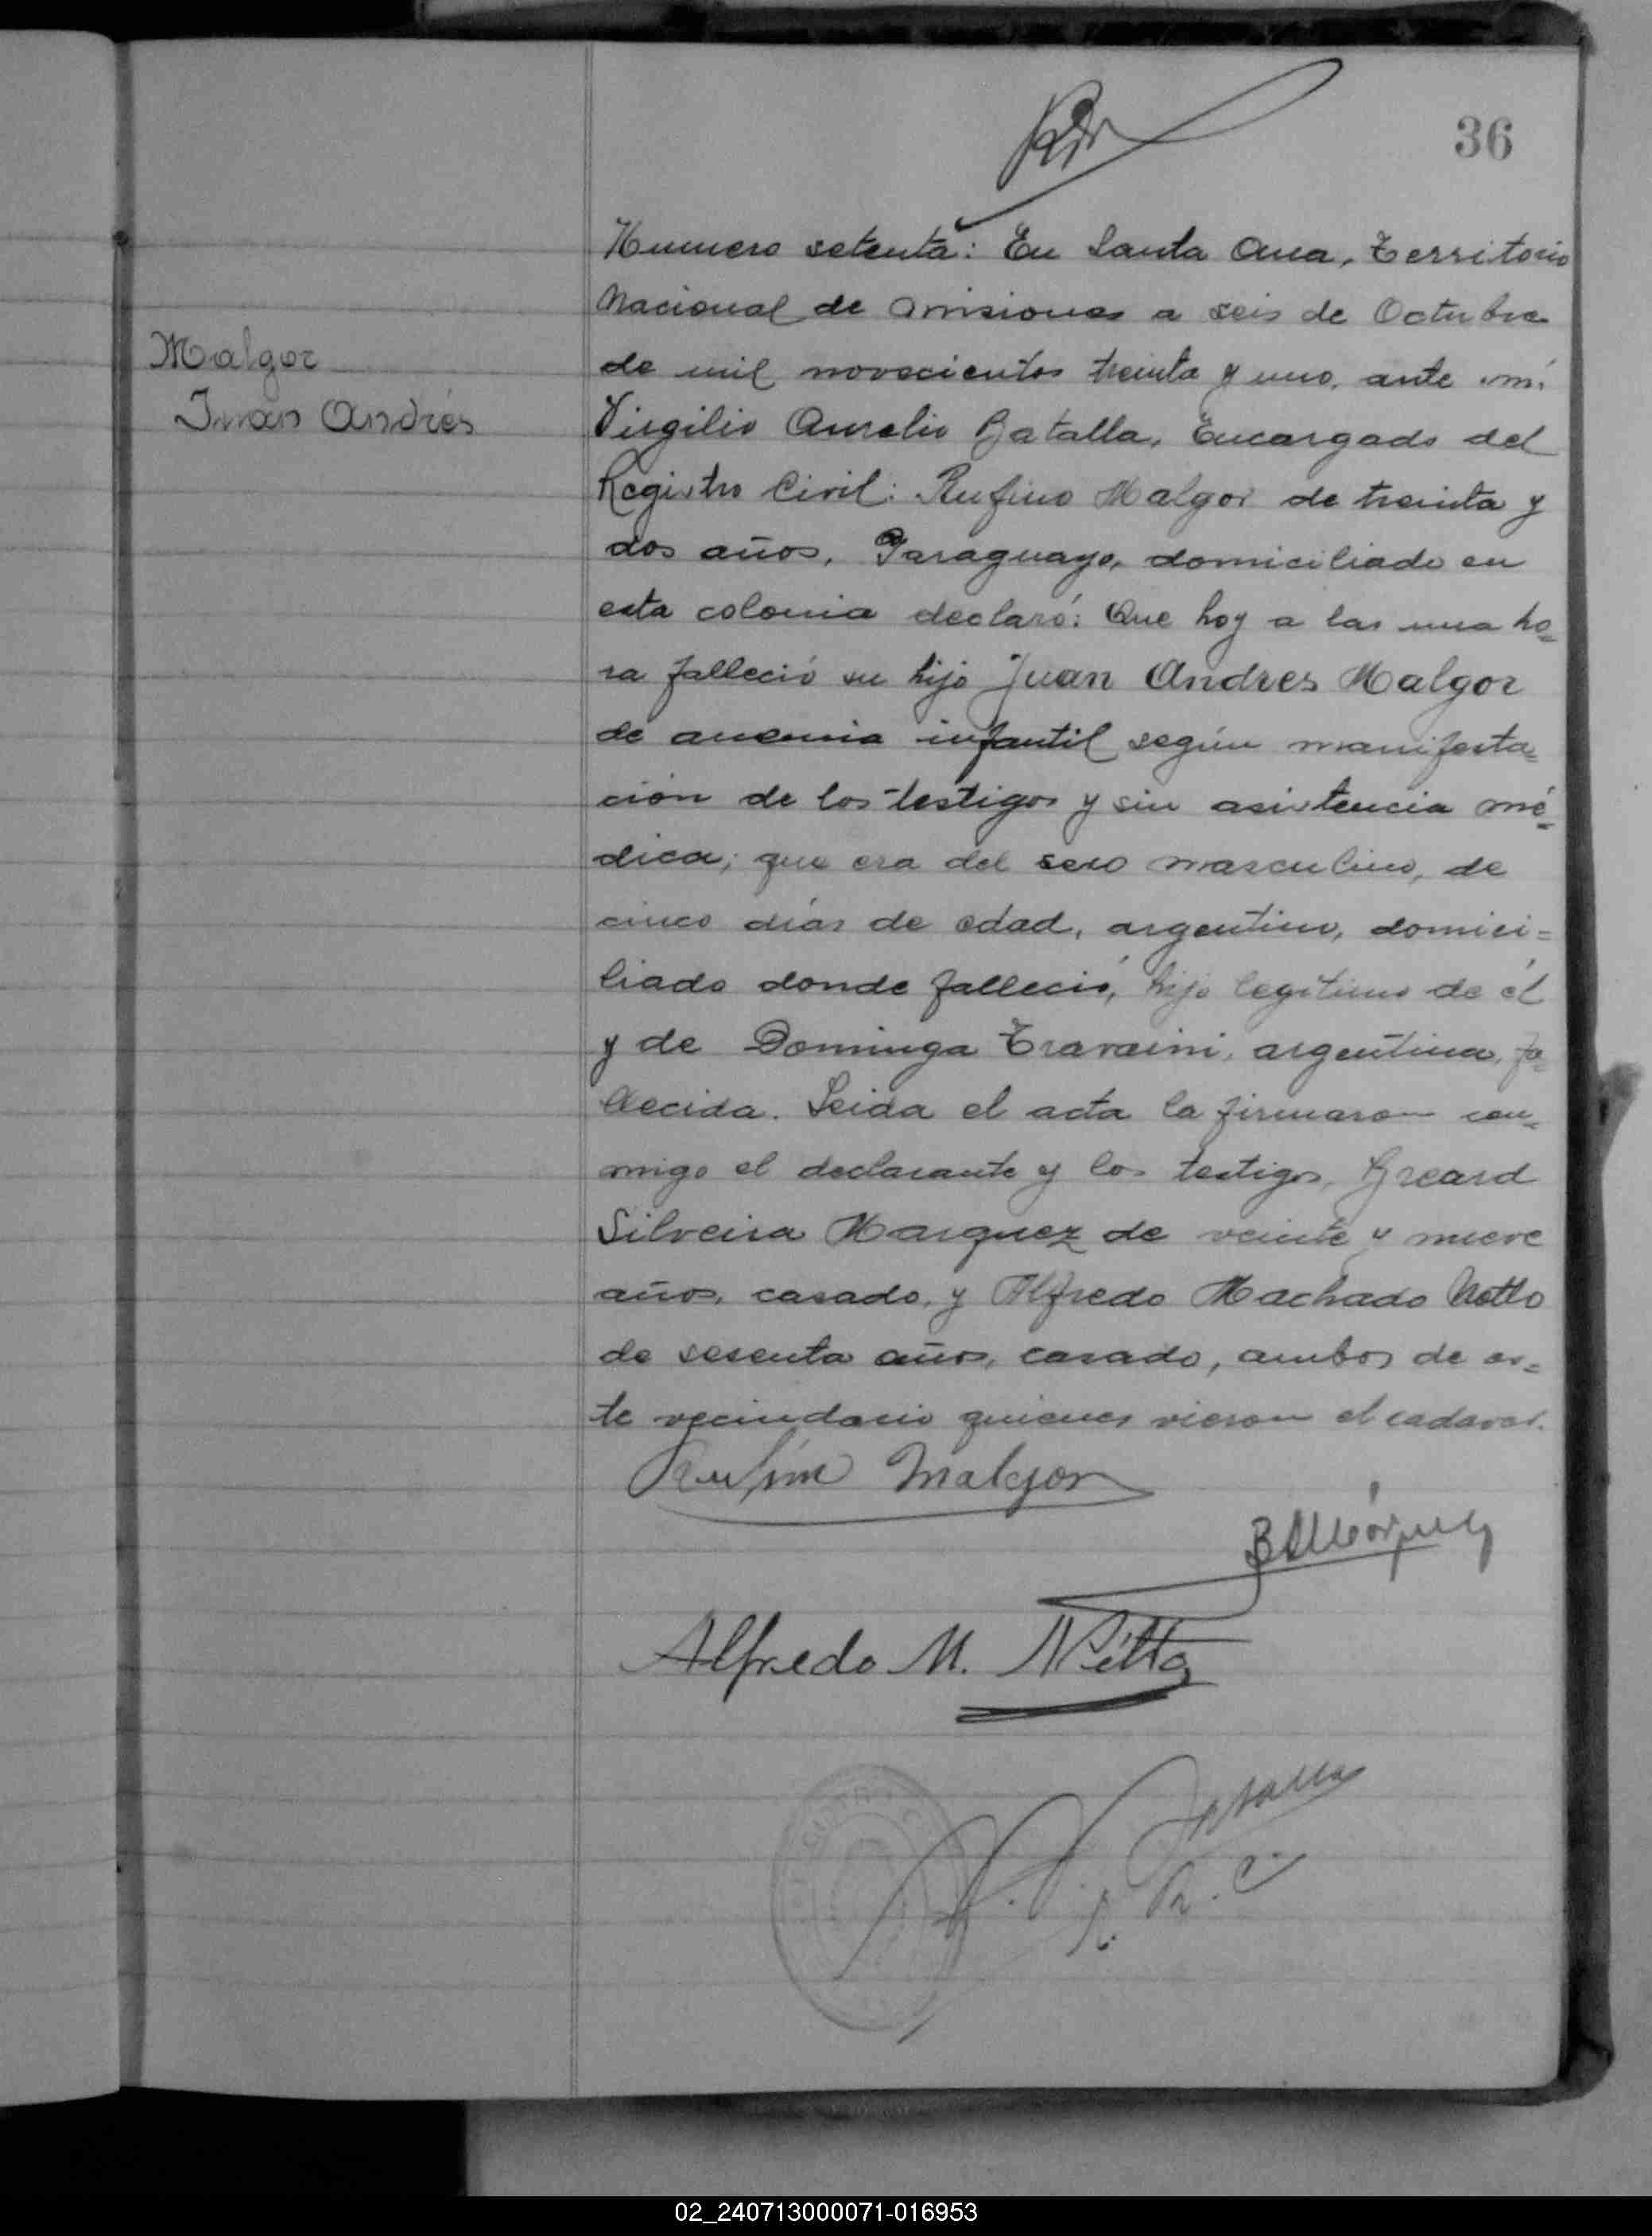 36
Numero setenta: En Santa Ana, Territorio
Nacional de Misiones a seis de Octubre
de mil novecientos treinta y uno, ante mí
Malgor
Juan Andrés
Virgilio Aurelio Batalla, Encargado del
Registro Civil: Rufino Malgor de treinta y
dos años, Paraguayo, domiciliado en
esta colonia declaró: Que hoy a las una ho=
ra falleció su hijo Juan Andres Malgor
de anemia infantil según manifesta=
ción de los testigos y sin asistencia mé=
dica; que era del sexo masculino, de
cinco días de edad, argentino, domici=
liado donde falleció, hijo legítimo de él
y de Dominga Travaini, argentina, fa=
llecida. Leida el acta la firmaron con=
migo el declarante y los testigos, Breard
Silveira Marquez de veinte y nueve
años, casado, y Alfredo Machado Netto
de sesenta años, casado, ambos de es=
te vecindario quienes vieron el cadaver.
Rufino Malgor
B S Márquez
Alfredo M. Nétto
Batalla
E. R. C.
02_240713000071-016953